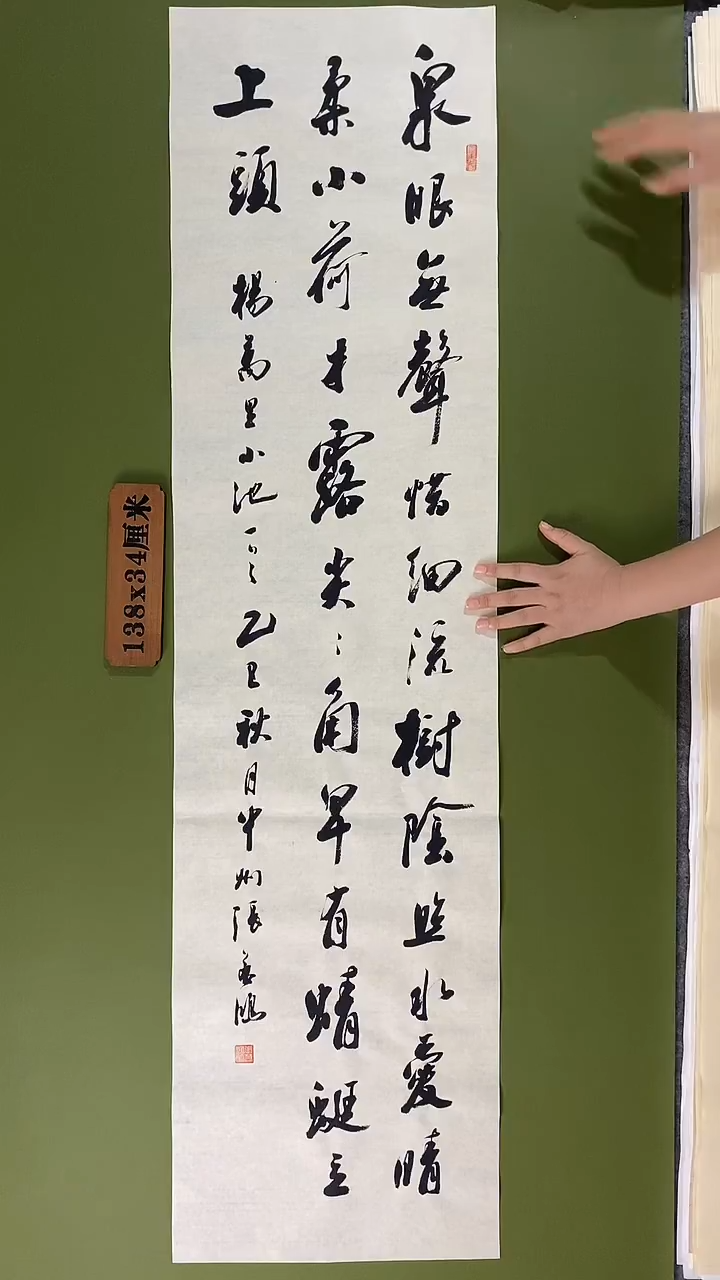 泉眼無聲惜細流樹陰照水愛晴
柔小荷才露尖々角早有蜻蜓立
上頭 楊萬里小池一首乙巳秋月中州張
138x34厘米